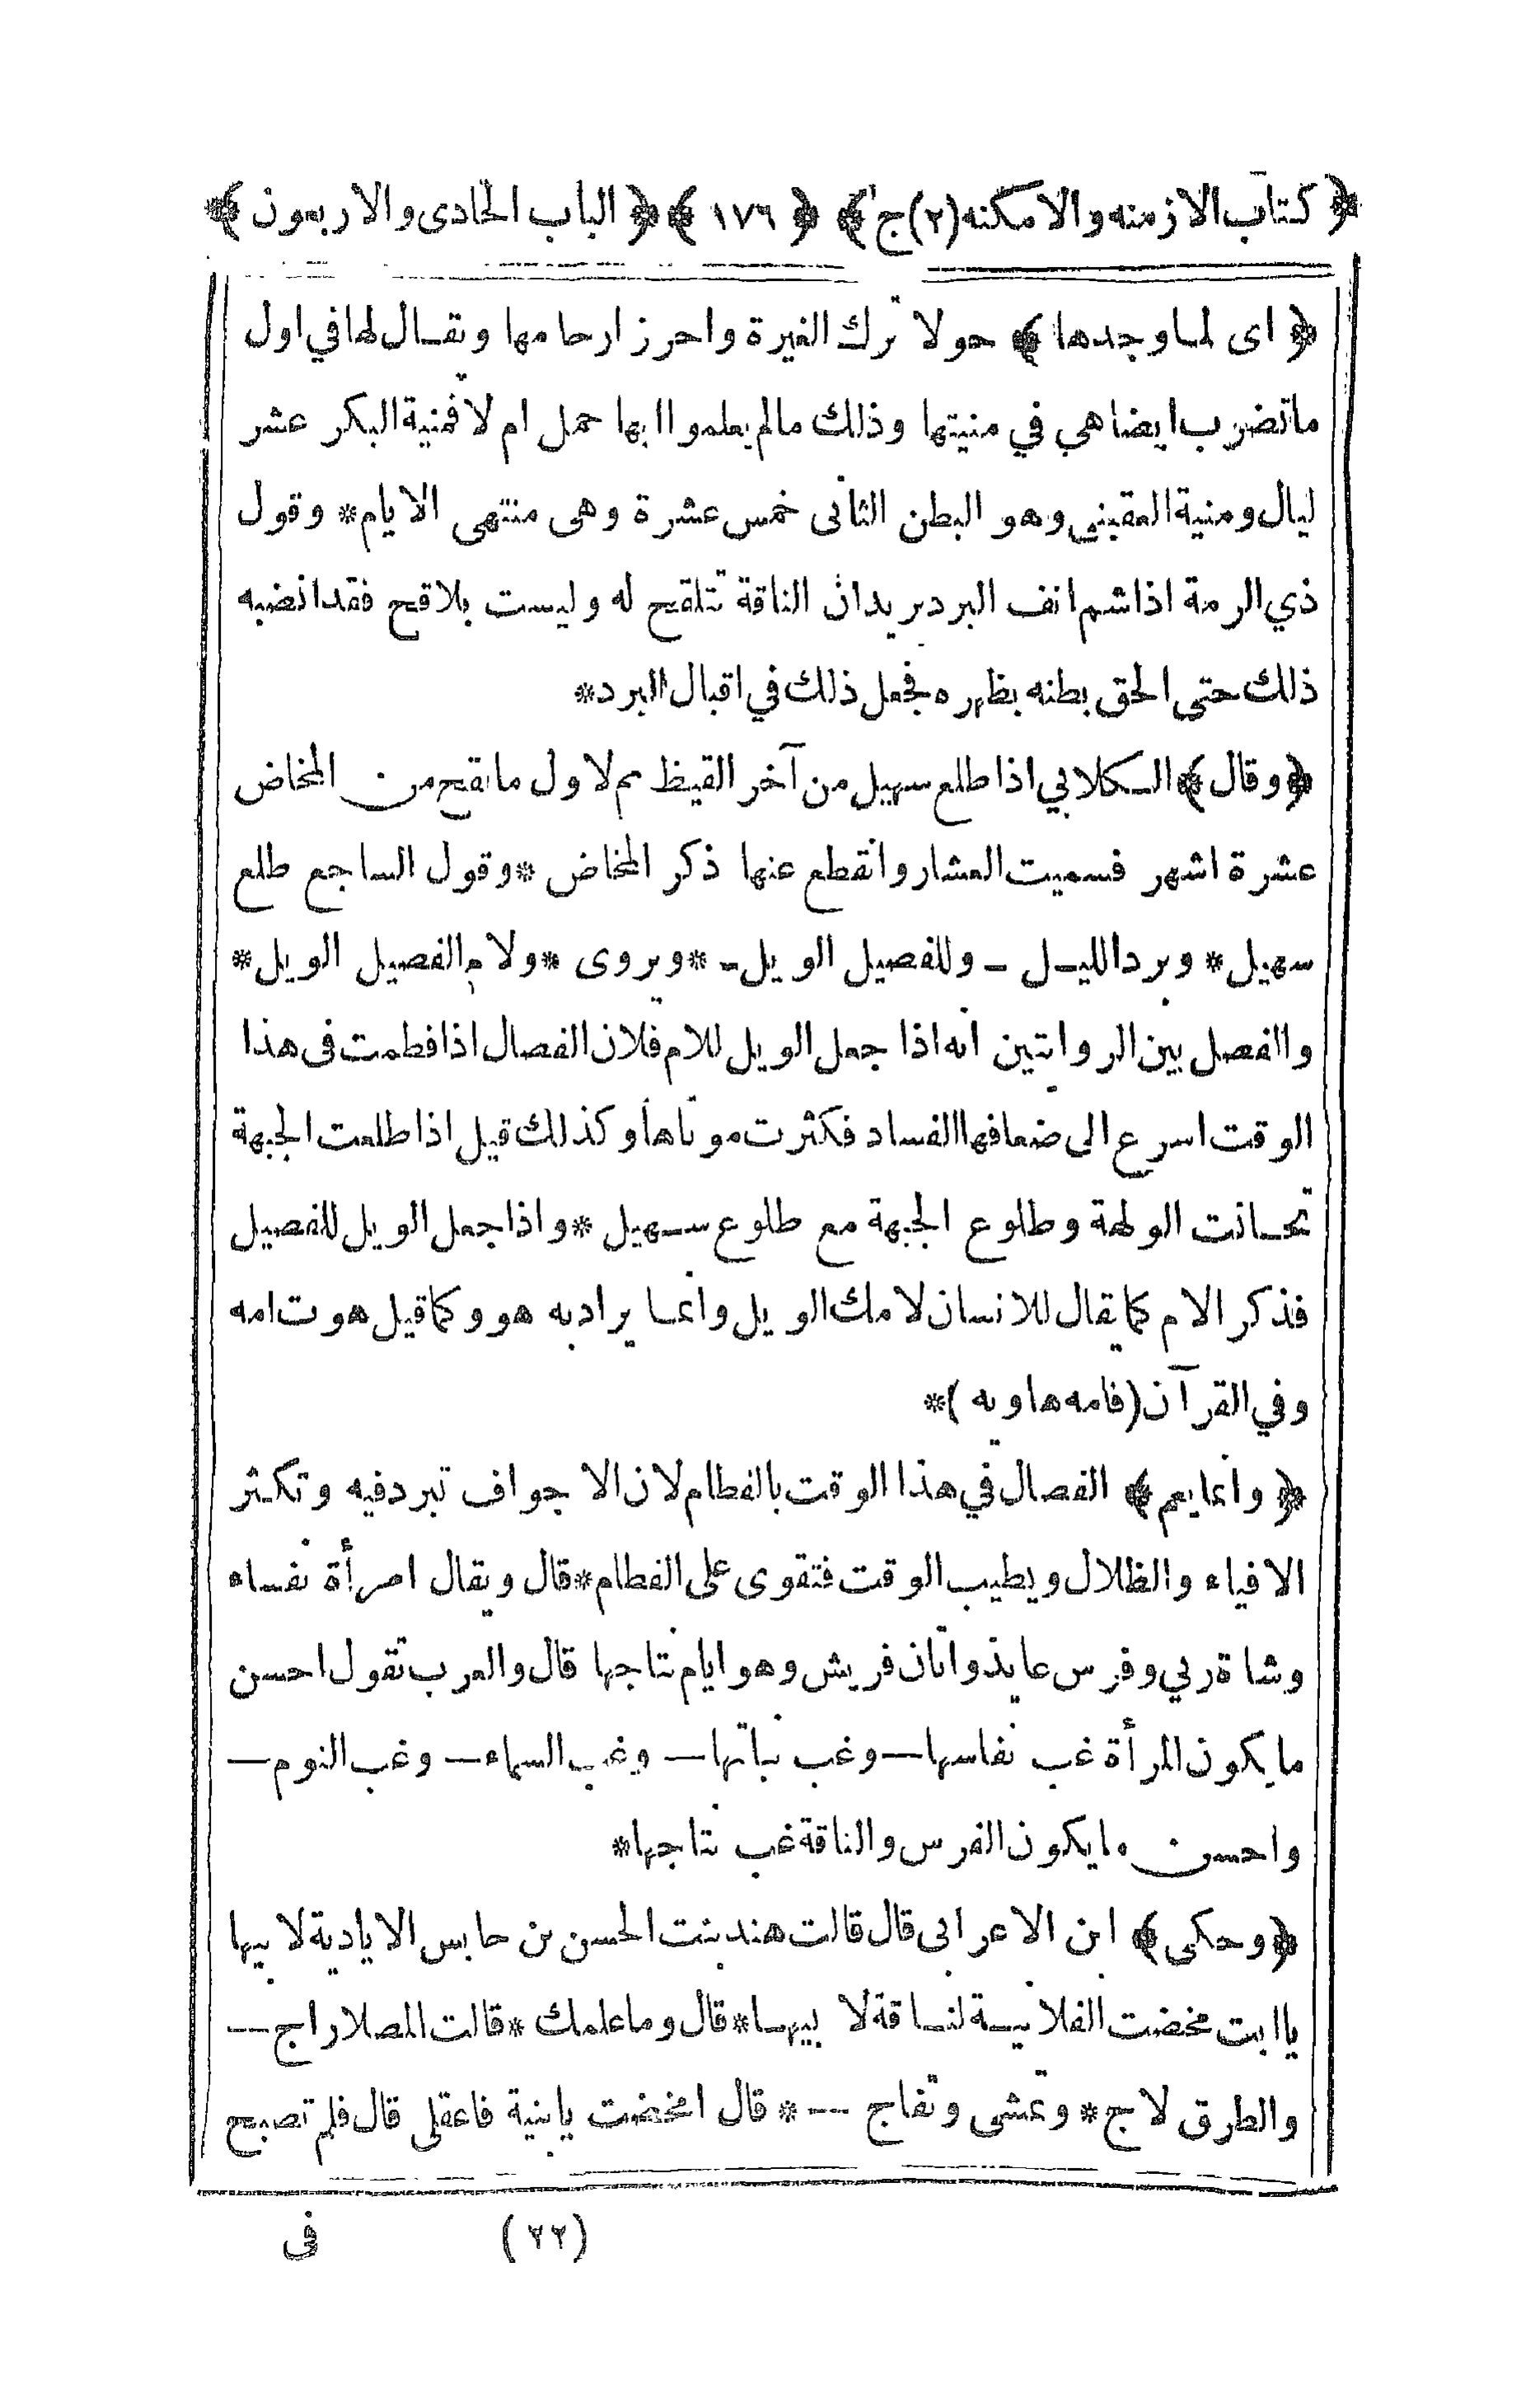 ﴿ كتاب الازمنه والامكنه (٢) ج ﴾ ﴿ ١٧٦ ﴾ ﴿ الباب الحادى والاربعون ﴾
﴿ اى لما وجدها ﴾ حولا ترك الغيرة واحرز ارحامها ويقال لها في اول
ما تضرب ايضا هي في منيتها وذلك مالم يعلموا ابها حمل ام لا فمنية البكر عشر
ليال ومنية العقيني وهو البطن الثانى خمس عشرة وهى منتهى الايام* وقول
ذي الرمة اذا شم انف البرد يريد ان الناقة تتلقح له وليست بلاقح فقد انضبه
ذلك حتى الحق بطنه بظهره فجعل ذلك في اقبال البرد*
﴿ وقال ﴾ الكلابي اذا طلع سهيل من آخر القيظ تم لاول ما يقح من المخاض
عشرة اشهر فسميت العشار وانقطع عنها ذكر المخاض *وقول الساجع طلع
سهيل* وبرد الليل - وللفصيل الويل-*ويروى *ولام الفصيل الويل*
والفصل بين الروايتين انه اذا جعل الويل للام فلان الفصال اذا فطمت فى هذا
الوقت اسرع الى ضعافها الفساد فكثرت موتاها وكذلك قيل اذا طلعت الجبهة
تحانت الولهة وطلوع الجبهة مع طلوع سهيل *واذا جعل الويل للفصيل
فذكر الام كما يقال للانسان لامك الويل وانما يراد به هو وكما قيل هوت امه
وفي القرآن (فامه هاويه )*
﴿ وانما يعم ﴾ الفصال في هذا الوقت بالفطام لان الاجواف تبرد فيه وتكثر
الافياء والظلال ويطيب الوقت فتقوى على الفطام*قال ويقال امرأة نفساء
وشاة ربي وفرس عايذ واتان فريش وهو ايام نتاجها قال والعرب تقول احسن
ما يكون المرأة غب نفاسها—وغب نباتها— وغب السماء— وغب النوم—
واحسن ما يكون الفرس والناقة غب نتاجها*
﴿ وحكى ﴾ ابن الاعرابى قال قالت هند بنت الحسن بن حابس الايادية لابيها
يا ابت مخضت الفلانية لناقة لابيها*قال وما علمك *قالت الصلا راج--
والطرق لاج* وتمشى وتفاج --* قال امخضت يا بنية فاعقلى قال فلم تصبح
(٢٢) فى